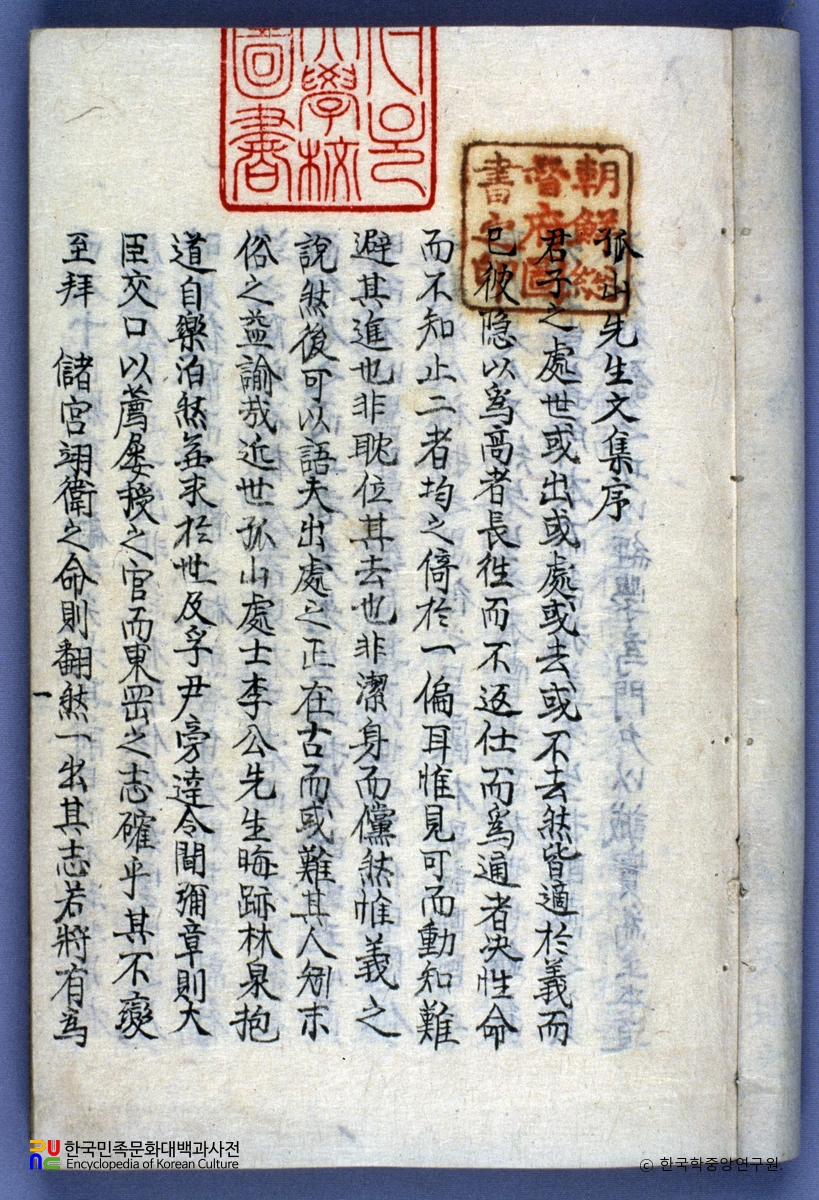 孤山先生文集序
君子之處世或出或處或去或不去然皆適於義而
已彼隐以爲高者長徃而不返仕而爲通者决性命
而不知止二者均之倚於一偏耳惟見可而動知難
避其進也非耽位其去也非潔身而儻然惟義之
說然後可以語夫出處之正在古而或難其人矧末
俗之益諭哉近世孤山處士李公先生晦跡林泉抱
道自樂泊然無求於世及孚尹旁達令聞彌章則大
臣交口以薦屡授之官而東岡之志確乎其不變
至拜 儲宮翊衛之命則翻然一出其志若將有爲
朝鮮總
督府圖
書之印
學校
圖書
한국민족문화대백과사전
Encyclopedia of Korean Culture
© 한국학중앙연구원